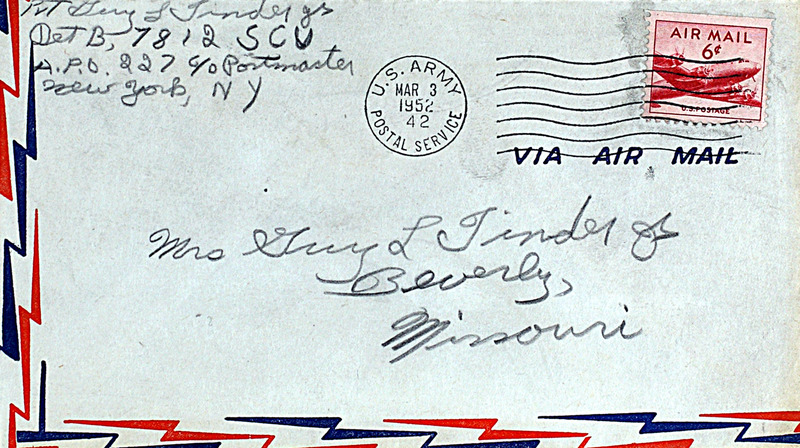 Pvt Guy L Tinder Jr
Det B, 7812 SCU
A.P.O. 227 c/o Postmaster
New York, N Y
U.S. ARMY
MAR 3
1952
42
POSTAL SERVICE
AIR MAIL
6¢
U.S. POSTAGE
VIA AIR MAIL
Mrs Guy L Tinder Jr
Beverly,
Missouri